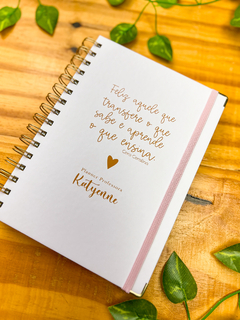 Feliz aquele que
transfere o que
sabe e aprende
o que ensina.
Cora Coralina
Planner Professora
Katyenne